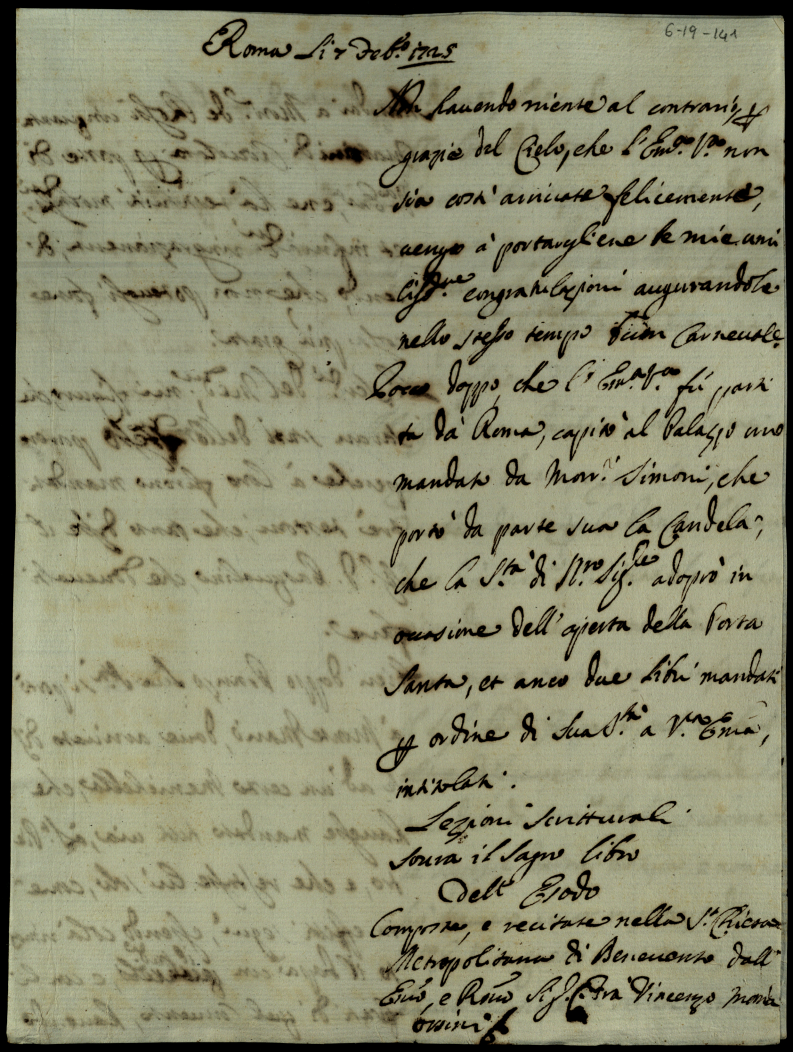 6-19-141
Roma li 7 Feb.º 1725
Non havendo niente al contrario, per
grazia del Cielo, che l'Em.ª V.ª non
sia costì arrivata felicemente,
vengo à portargliene le mie umi
liss.me congratulazioni augurandole
nello stesso tempo buon Carnevale.
Poco doppo, che l'Em.ª V.ª fù parti
ta da Roma, capitò al Palazzo uno
mandato da Mon.r Simoni, che
portò da parte sua la Candela,
che la S.tà di N.ro Sig.re adoprò in
occasione dell'aperta della Porta
Santa, et anco due libri mandati
per ordine di Sua S.tà a V.ra Em.a,
intitolati.
Lezioni Scritturali
sovra il Sagro libro
dell'Esodo
Composte, e recitate nella S.ta Chiesa
Metropolitana di Benevento dall'
Em.o, e R.mo Sig.r Fra Vincenzo Maria
Orsini